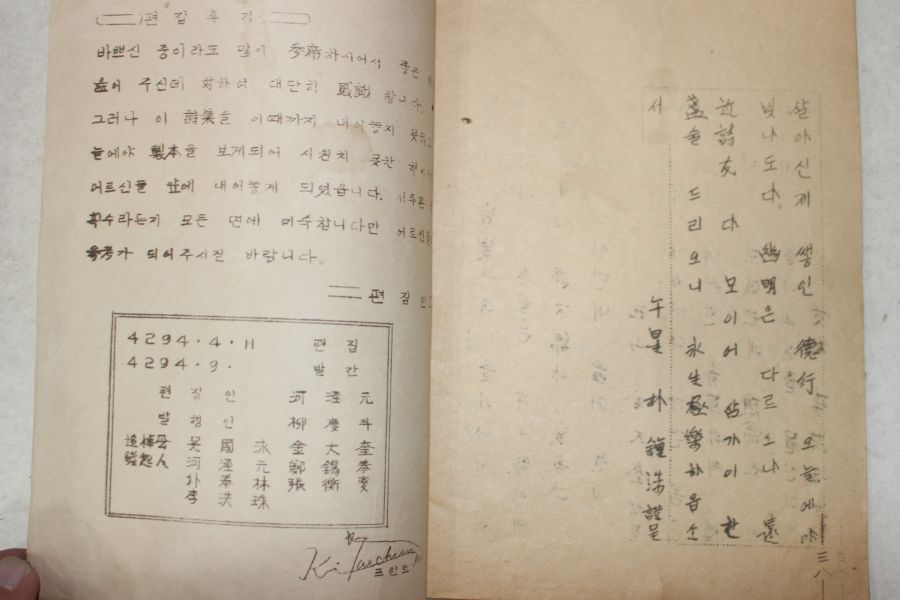 편집후기
바쁘신 중이라도 많이 參席하시어서 좋은
주신데 對하여 대단히 感謝합니다.
그러나 이 詩集을 이때까지 내어놓지 못하고
늘에야 製本을 보게되어 시원치 못한
어르신들 앞에 내어놓게 되었읍니다. 서투른
획수라든지 모든 면에 미숙합니다만 어르신들
參考가 되어주시길 바랍니다.
편집인
4294.4.11 편집
4294.9. 발간
편집인 河澄元
발행인 柳慶斗
追悼
發起人
吳國泳 金大奎
河澄元 鄭錫奉
朴奉林 張衡変
李洪珠
Ki
프린트
살아신제 쌓인 德行 오늘에야
빛나도다 幽明은 다르오나 遠
近詩友 다 모이어 한
盞술 드리오니 永生極樂하옵소
서 午星 朴鍾洙 謹呈
三八